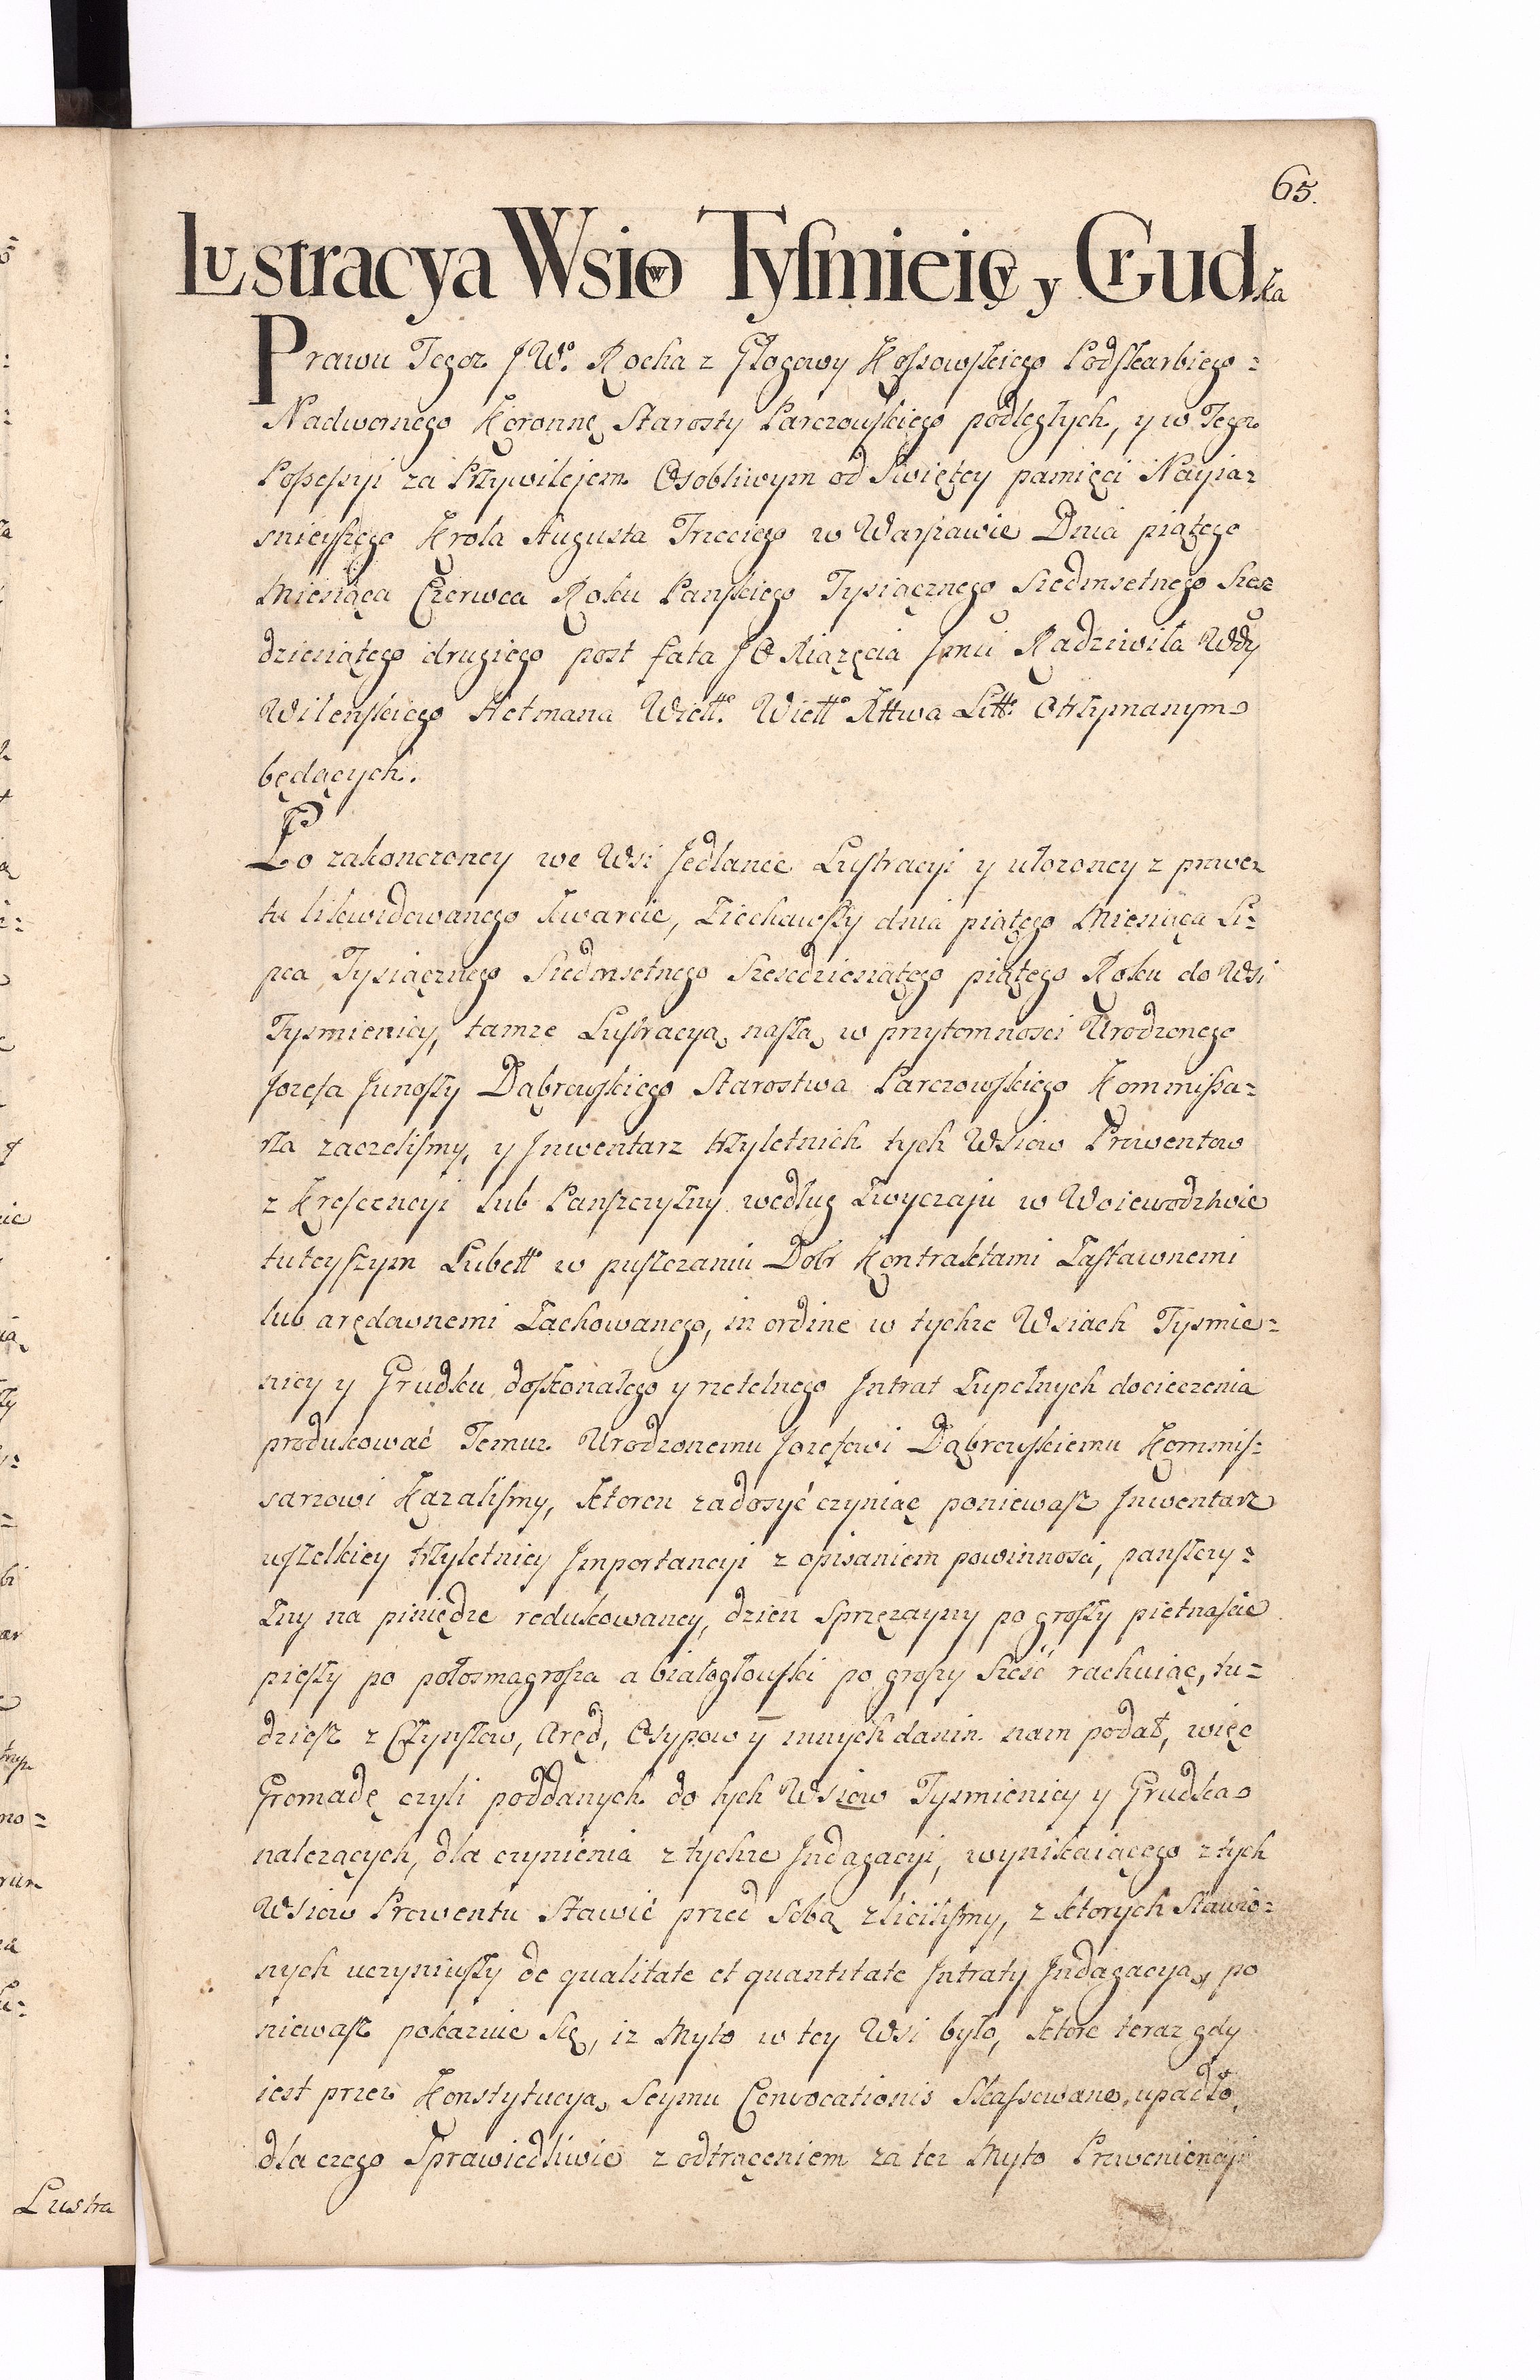 65.
Lustracya Wsiow Tysmienicy y Grudka
Prawu Tegoz JW.° Rocha z Głogowy Kossowskiego Podskarbiego=
Nadwornego Koronne Starosty Parczowskiego podległych, y w Tegoz
Possessyi za Przywilejem Osobliwym od Swiętey pamięci Nayia=
snieyszego Krola Augusta Trzeciego w Warszawie Dnia piątego
Miesiąca Czerwca Roku Panskiego Tysiącznego Siedmsetnego Szesz
dziesiątego drugiego post fata JO Xiązęcia Jmci Radziwiła Wdy
Wilenskiego Hetmana Wiell°. Wiell° Xttwa Litt°. Otrzymanym
będących.
Po zakonczoney we Wsi Jedlance Lustracyi y ułozoney z prowen
tu likwidowanego Kwarcie, Ziechawszy dnia piątego Miesiąca Li=
pca Tysiącznego Siedmsetnego Szescdziesiątego piątego Roku do Wsi
Tysmienicy, tamze Lustracyą naszą w przytomnosci Urodzonego
Jozefa Junoszy Dąbrowskiego Starostwa Parczowskiego Kommissa=
rza zaczelismy, y Jnwentarz trzyletnich tych Wsiow Prowentow
z Krescencyi lub Panszczyzny według Zwyczaju w Woiewodztwie
tuteyszym Lubell° w puszczaniu Dobr Kontraktami Zastawnemi
lub arędownemi Zachowanego, in ordine w tychze Wsiach Tysmie=
nicy y Grudku doskonałego y rzetelnego Jntrat Zupełnych docieczenia
produkować Temuz Urodzonemu Jozefowi Dąbrowskiemu Kommis=
sarzowi Kazalismy, Ktoren zadosyć czyniąc poniewasz Jnwentarz
wszelkiey trzyletniey Jmportancyi z opisaniem powinnosci, panszczy=
zny na piniędze redukowaney, dzien sprzęzayny po groszy piętnascie
pieszy po połosmagrosza a białogłowski po groszy Szesć rachuiąc, tu=
dziesz z Czynszow, Aręd, Osypow ÿ innych danin nam podał, więc
Gromadę czyli poddanych do tych Wsiow Tysmienicy y Grudka
nalezących, dla czynienia z tychze Jndagacyi, wynikaiącego z tych
Wsiow Prowentu Stawić przed Sobą zliciliśmy, z ktorych Stawio=
nych uczyniwszy de qualitate et quantitate Jntraty Jndagacyą, po
niewasz pokazuie Się, iz Myto w tey Wsi było, Ktore teraz gdy
iest przez Konstytucyą Seymu Convocationis Skassowane, upadło,
dla czego Sprawiedliwie z odtrąceniem za tez Myto Proweniencyi
Lustra